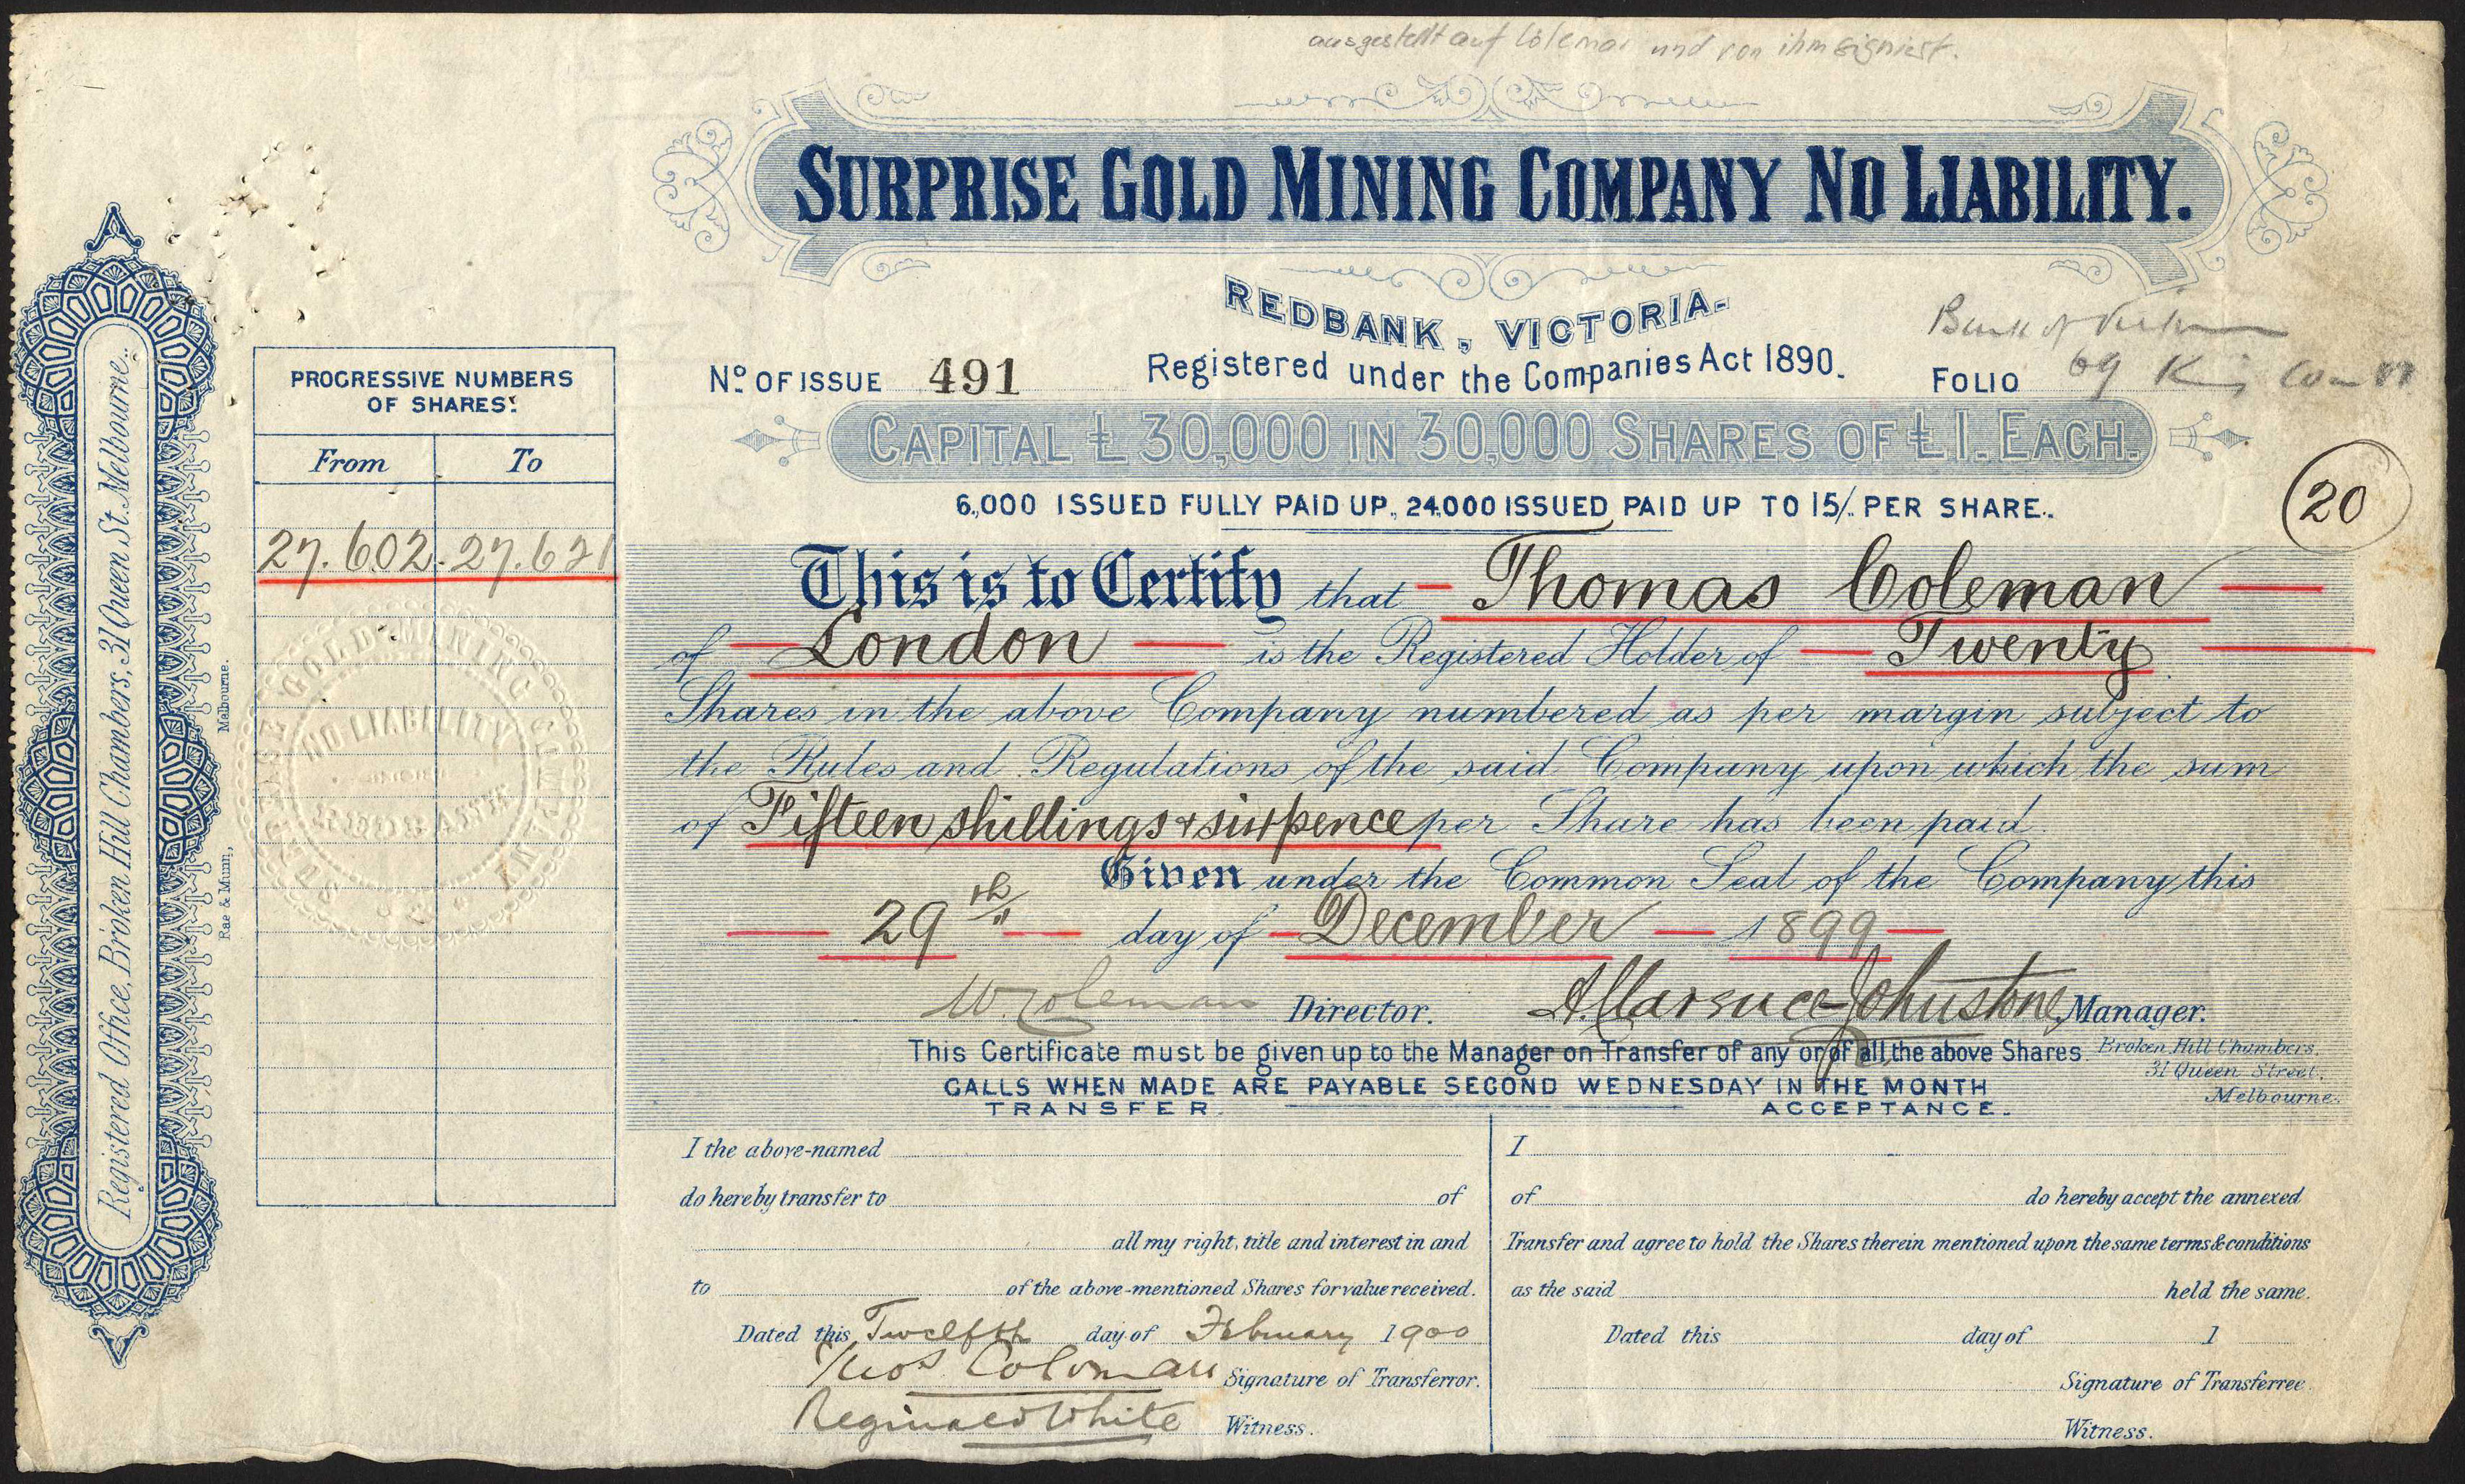 ausgestellt auf Coleman und von ihm signiert.
SURPRISE GOLD MINING COMPANY NO LIABILITY.
REDBANK, VICTORIA.
Registered under the Companies Act 1890.
No. OF ISSUE 491
FOLIO 69
Bank of
CAPITAL £30,000 IN 30,000 SHARES OF £1. EACH.
6,000 ISSUED FULLY PAID UP, 24,000 ISSUED PAID UP TO 15/. PER SHARE.
20
PROGRESSIVE NUMBERS
OF SHARES.
From To
27.602. 27.621
Registered Office, Broken Hill Chambers, 31 Queen St. Melbourne.
Rae & Munn, Melbourne.
SURPRISE GOLD MINING COMPANY
NO LIABILITY
REDBANK
This is to Certify that Thomas Coleman
of London is the Registered Holder of Twenty
Shares in the above Company numbered as per margin subject to
the Rules and Regulations of the said Company upon which the sum
of Fifteen shillings & sixpence per Share has been paid.
Given under the Common Seal of the Company this
29th day of December 1899
W. Coleman Director. Johnstone, Manager.
This Certificate must be given up to the Manager on Transfer of any or of all the above Shares.
Broken Hill Chambers,
31 Queen Street,
Melbourne.
CALLS WHEN MADE ARE PAYABLE SECOND WEDNESDAY IN THE MONTH
TRANSFER.
I the above-named
do hereby transfer to of
all my right, title and interest in and
to of the above-mentioned Shares for value received.
Dated this Twelfth day of February 1900
Thos Coleman Signature of Transferror.
Reginald White Witness.
ACCEPTANCE.
I
of do hereby accept the annexed
Transfer and agree to hold the Shares therein mentioned upon the same terms & conditions
as the said held the same.
Dated this day of 1
Signature of Transferree.
Witness.